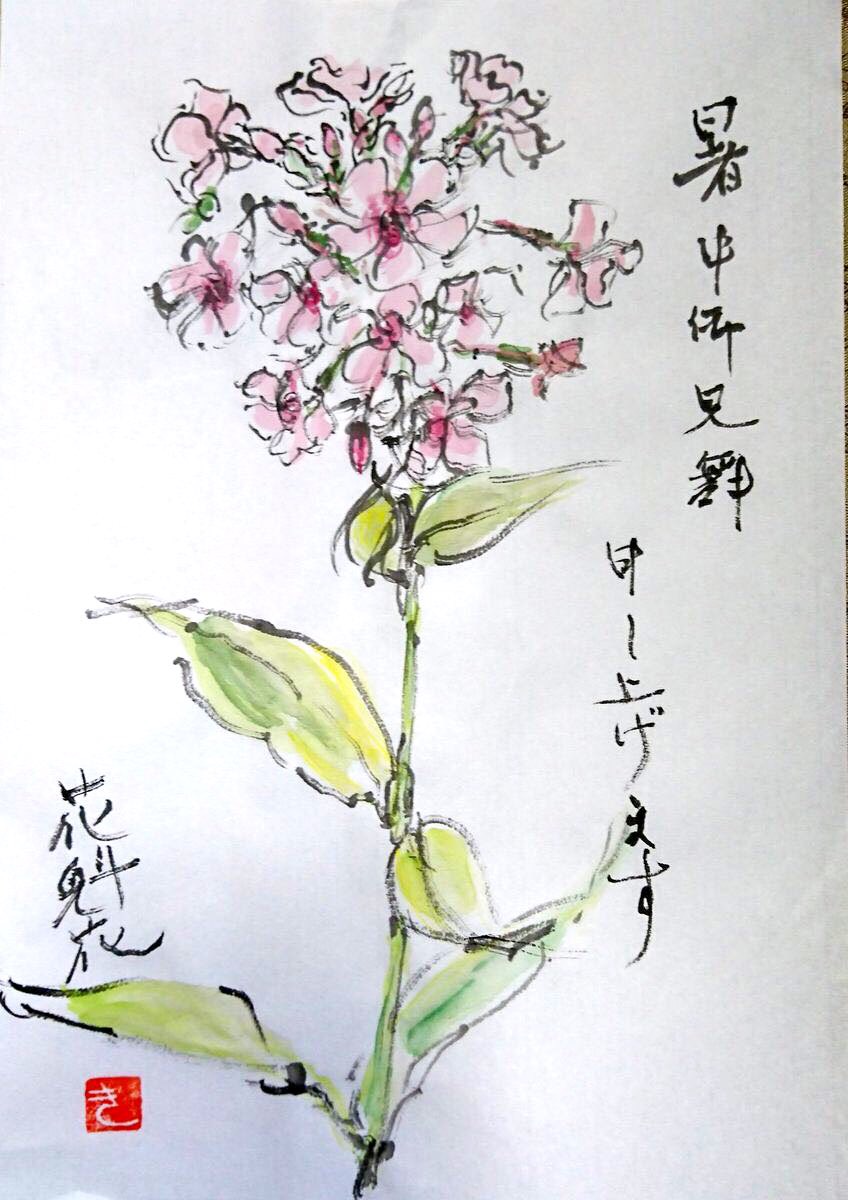 暑中御見舞
申し上げます
花魁花
き